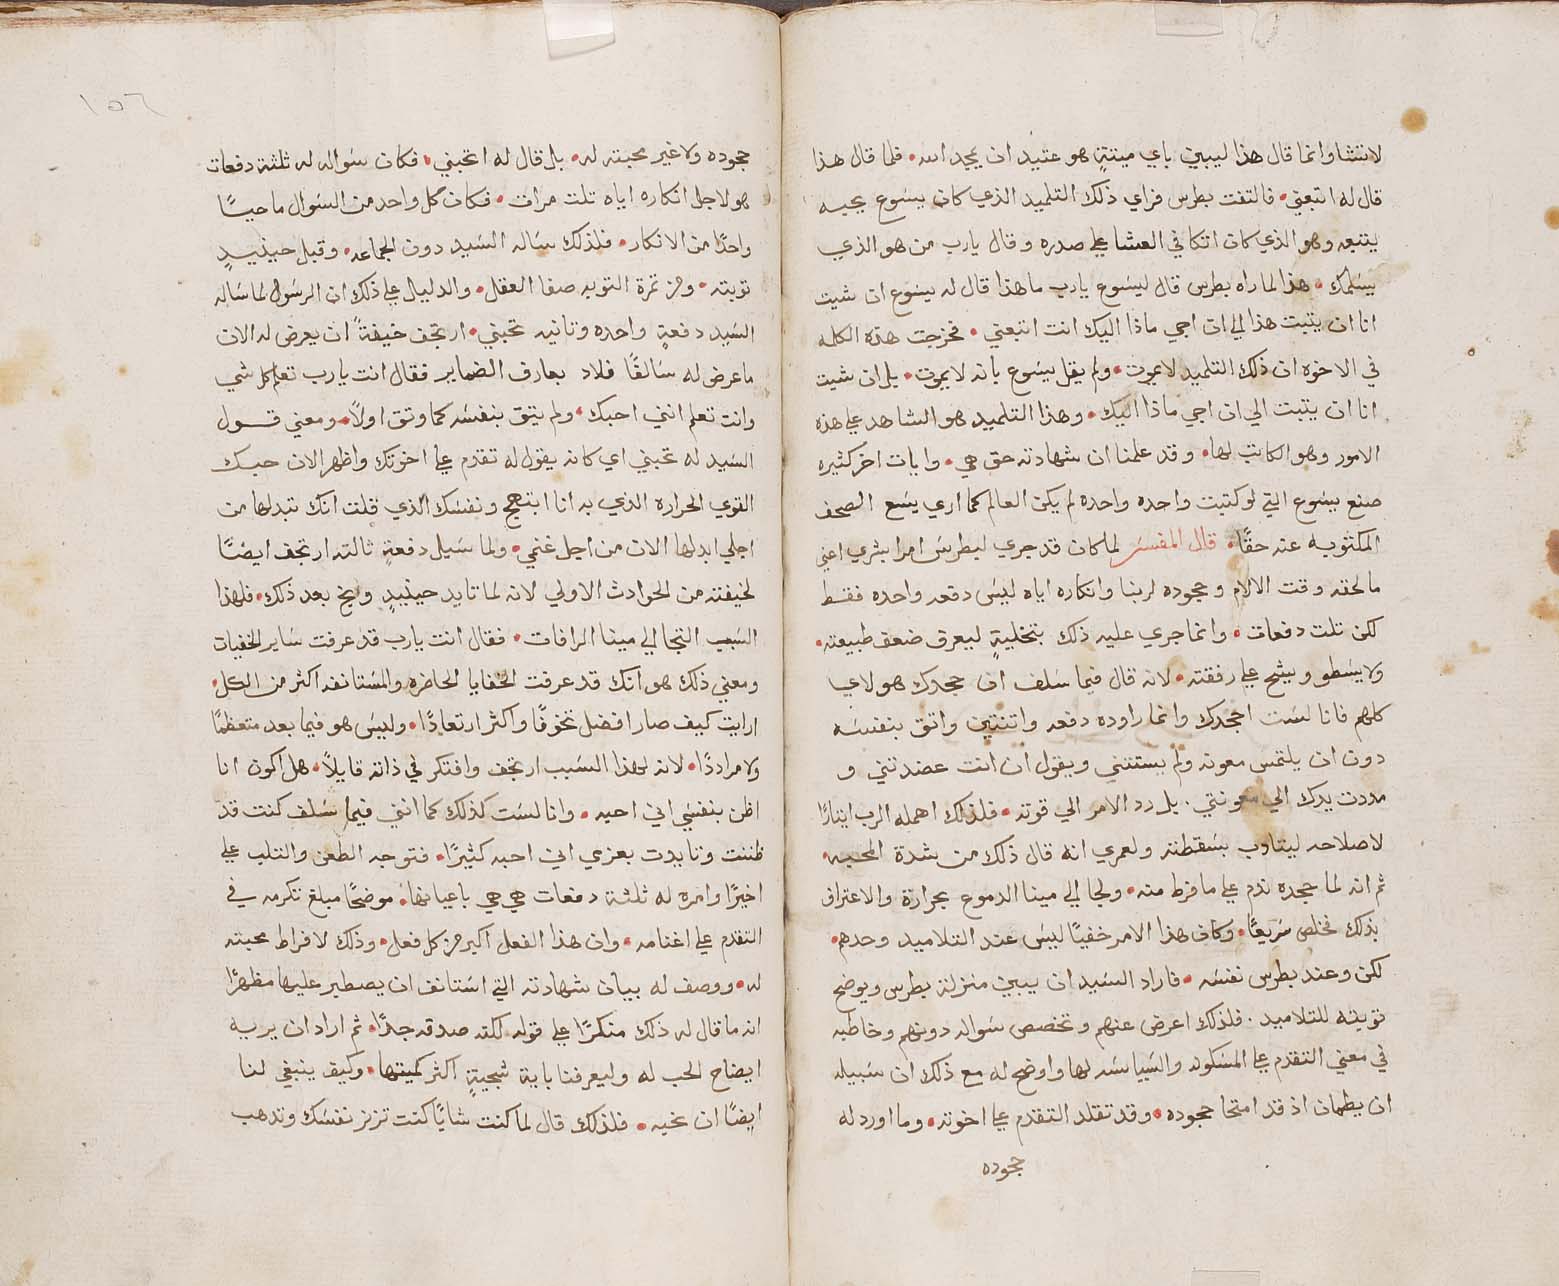 لا تشا وانما قال هذا ليبين باي ميتةٍ هو عتيد ان يمجد الله • فلما قال هذا
قال له اتبعني • فالتفت بطرس فراي ذلك التلميذ الذي كان يسوع يحبه
يتبعه وهو الذي كان اتكا في العشا علي صدره وقال يارب من هو الذي
يسلمك • هذا لما راه بطرس قال ليسوع يارب ما هذا قال له يسوع ان شيت
انا ان يثبت هذا الي ان اجي ماذا اليك انت اتبعني • فخرجت هذه الكله
في الاخوه ان ذلك التلميد لا يموت • ولم يقل يسوع بانه لا يموت • بل ان شيت
انا ان يثبت الي ان اجي ماذا اليك • وهذا التلميد هو الشاهد علي هذه
الامور وهو الكاتب لها • وقد علمنا ان شهادته حق هي • وايات اخر كثيره
صنع يسوع التي لو كتبت واحده واحده لم يكن العالم كما اري يسع الصحف
المكتوبه عنه حقًا • قال المفسر لما كان قد جري لبطرس امرا بشري اعني
ما لحقه وقت الالام وجحوده لربنا وانكاره اياه ليس دفعه واحده فقط
لكن تلت دفعات • وانما جري عليه ذلك بتخليةٍ ليعرف ضعف طبيعته •
ولا يسطو ويشح علي رفقته • لانه قال فيما سلف ان جحدك هولاي
كلهم فانا لست اجحدك وانما راوده دفعه واتنتين واتق بنفسه
دون ان يلتمس معونه ولم يستثني ويقول ان انت عضدتني و
مددت يدك الي معونتي . بل رد الامر الي قوته • فلذلك اهمله الرب ايثارًا
لاصلاحه ليتادب بسقطته ولعمري انه قال ذلك من شدة المحبه •
ثم انه لما جحده ندم علي ما فرط منه • ولجا الي مينا الدموع بحرارة والاعتراف
بذلك فخلص سريعًا • وكان هذا الامر خفيًا ليس عند التلاميد وحدهم •
لكن وعند بطرس نفسه • فاراد السيد ان يبين منزلة بطرس ويوضح
توبته للتلاميد . فلذلك اعرض عنهم وتخصص سواله دونهم وخاطبه
في معني التقدم علي المسكونه والسياسه لها واوضح له مع ذلك ان سبيله
ان يطمان اذ قد امتحا جحوده • وقد تقلد التقدم علي اخوته • وما اورد له
جحوده
١٥٦
جحوده ولا غير محبته له • بل قال له اتحبني • فكان سواله له ثلثة دفعات
هو لاجل انكاره اياه تلت مرات • فكان كل واحد من السوال ماحيًا
واحدًا من الانكار • فلذلك ساله السيد دون الجماعه • وقبل حينيدٍ
توبته • ومن ثمرة التوبه صفا العقل • والدليل علي ذلك ان الرسول لما ساله
السيد دفعةٍ واحده وثانيه تحبني • ارتجف خيفةً ان يعرض له الان
ما عرض له سالفًا فلاد بعارف الضماير فقال انت يارب تعلم كل شي
وانت تعلم انني احبك • ولم يتق بنفسه كما وثق اولًا • ومعني قول
السيد له تحبني اي كانه يقول له تقدم علي اخوتك واظهر الان حبك
القوي الحراره الذي به انا ابتهج ونفسك الذي قلت انك تبدلها من
اجلي ابدلها الان من اجل غنمي • ولما سيل دفعةٍ ثالثه ارتجف ايضًا
لخيفته من الحوادث الاولي لانه لما تايد حينيدٍ وبخ بعد ذلك • فلهذا
السبب التجا الي مينا الرافات • فقال انت يارب قد عرفت ساير الخفيات
ومعني ذلك هو انك قد عرفت الخفايا الحاضره والمستانفه اكثر من الكل •
ارايت كيف صار افضل تخوفًا واكثر ارتعادًا • وليس هو فيما بعد متعظمًا
ولا مرادًا • لانه لهذا السبب ارتجف وافتكر في ذاته قايلًا • هل اكون انا
اظن بنفسي اني احبه • وانا لست كذلك كما انني فيما سلف كنت قد
ظننت وتايدت بعزمي اني احبه كثيرًا • فتوجه الطعن والثلب علي
اخيرًا وامره له ثلثة دفعات هي هي باعيانها • موضحًا مبلغ تكرمه في
التقدم علي اغنامه • وان هذا الفعل اكبر من كل فعل • وذلك لافراط محبته
له • ووصف له بيان شهادته التي استانف ان يصطبر عليها مظهرًا
انه ما قال له ذلك منكرًا علي قوله لكنه صدقه جدًا • ثم اراد ان يريه
ايضاح الحب له وليعرفنا باية سجيةٍ اكثر كميتها • وكيف ينبغي لنا
ايضًا ان نحبه • فلذلك قال لما كنت شابًا كنت تزنر نفسك وتدهب